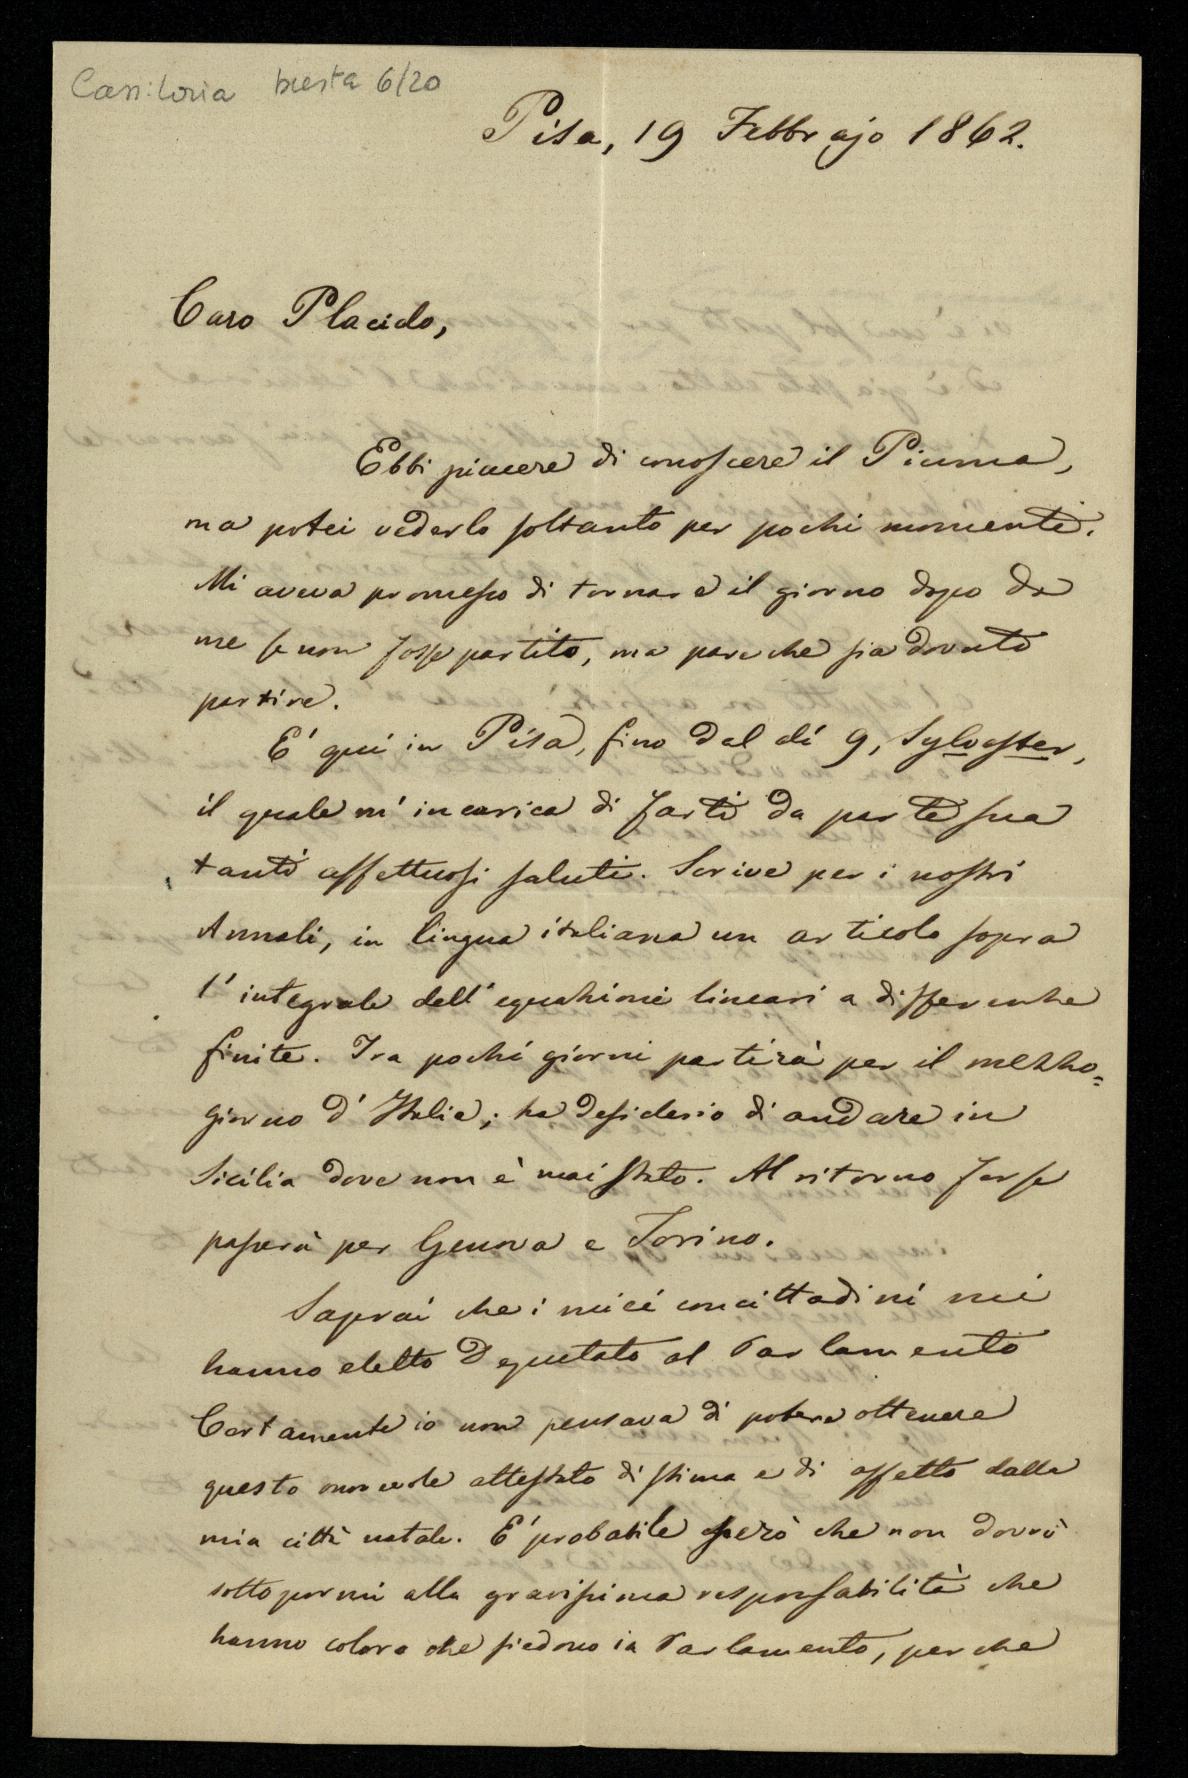 Cass: Loria busta 6/20
Pisa, 19 Febbrajo 1862.
Caro Placido,
Ebbi piacere di conoscere il Piuma,
ma potei vederlo soltanto per pochi momenti.
Mi aveva promesso di tornare il giorno dopo da
me se non fosse partito, ma pare che sia dovuto
partire.
E' qui in Pisa, fino dal dí 9, Sylvester,
il quale m' incarica di farti da parte sua
tanti affettuosi saluti. Scrive per i nostri
Annali, in lingua italiana un articolo sopra
l' integrale dell' equazioni lineari a differenze
finite. Tra pochi giorni partirà per il mezzo=
giorno d' Italia; ha desiderio di andare in
Sicilia dove non è mai stato. Al ritorno forse
passerà per Genova e Torino.
Saprai che i miei concittadini mi
hanno eletto Deputato al Parlamento
Certamente io non pensava di potere ottenere
questo onorevole attestato di stima e di affetto dalla
mia città natale. E' probabile però che non dovrò
sottopormi alla gravissima responsabilità che
hanno coloro che siedono in Parlamento, perche